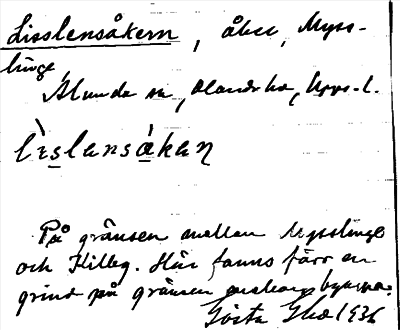 Lisslensåkern, åker, Myss-
linge,
Alunda sn, Olands hd, Upps. l.
lìslansåkaɳ
På gränsen mellan Mysslinge
och Kilby. Här fanns förr en
grind på gränsen mellan byarna.
Gösta 1936